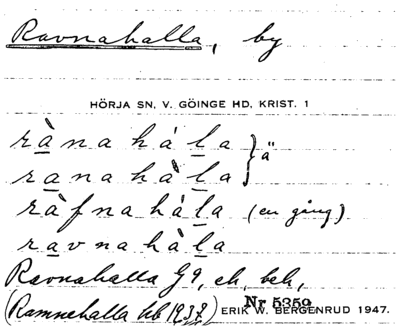 Ravnahalla, by
HÖRJA SN, V. GÖINGE HD, KRIST. 1
rà̱na há l̲a } ä
ra̲na hà l̲a
ràfna hál̲a (en gång)
ra̲vna hàl̲a
Ravnahalla G9, ek, beb,
(Ramnehalla hb 1937)
Nr 5359
ERIK W. BERGENRUD 1947.